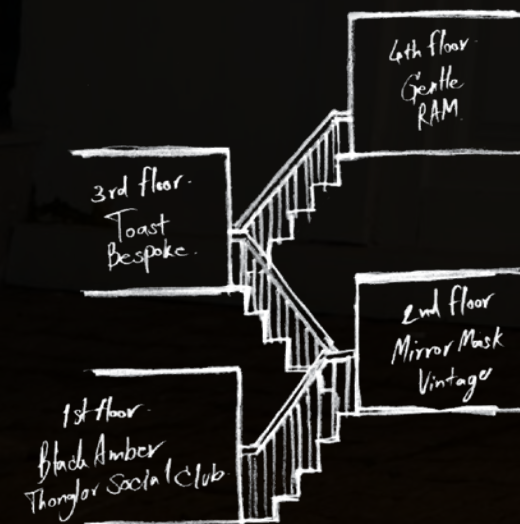 4th floor.
Gentle
RAM
3rd floor.
Toast
Bespoke.
2nd floor
Mirror Mask
Vintage
1st floor.
Black Amber
Thonglor Social Club